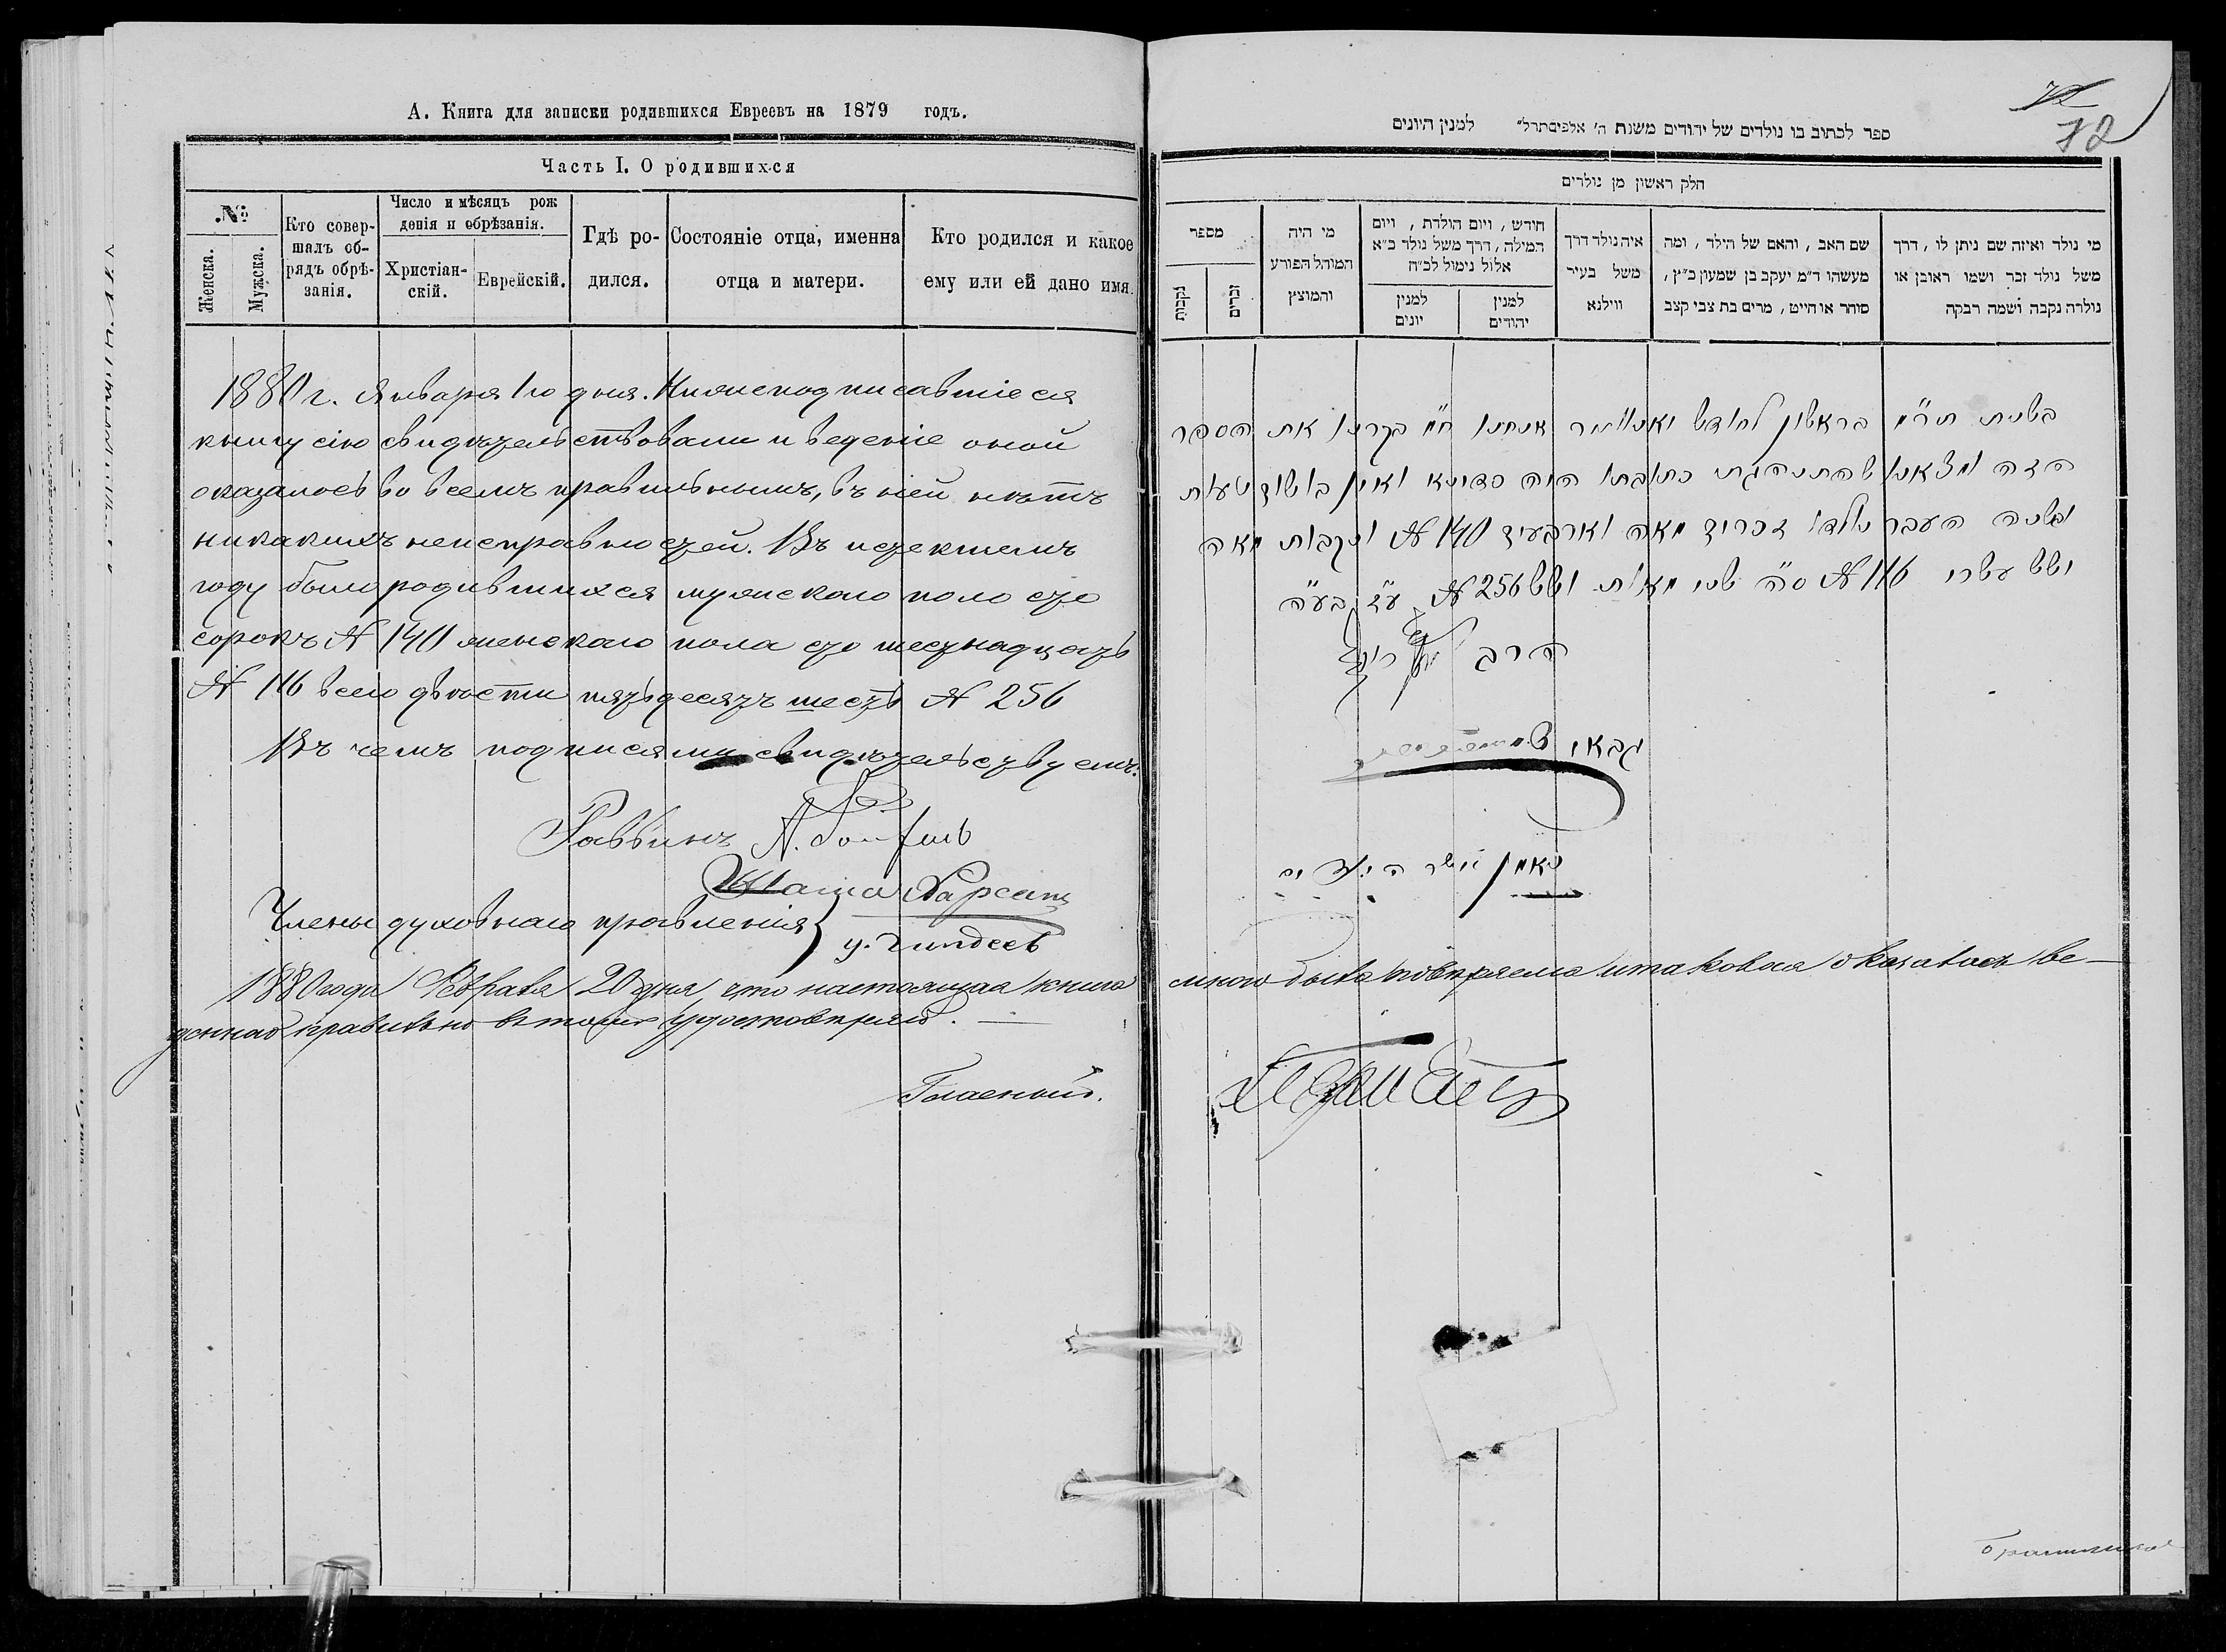 А. Книга для записки родившихся Евреевъ на 1879 годъ.
Часть I. О родившихся
№
Женска.
Мужска.
Кто совер-
шалъ об-
рядъ обрѣ-
занія.
Число и мѣсяцъ рож
денія и обрѣзанія.
Христіан-
скій.
Еврейскій.
Гдѣ ро-
дился.
Состояніе отца, имена
отца и матери.
Кто родился и какое
ему или ей дано имя.
1880 г. Января 1го дня. Нижеподписавшіеся
книгу сію свидѣтельствовали и веденіе оной
оказалось во всемъ правильнымъ, въ ней нѣтъ
никакихъ неисправностей. Въ истекшемъ
году было родившихся мужскаго поло сто
сорокъ № 140 женскаго пола сто шестнадцать
№ 116 всего двѣсти пятьдесятъ шесть № 256
Въ чемъ подписями свидѣтельствуемъ:
Раввинъ А.
Члены духовнаго правленія
1880 года Февраля 20 дня, что настоящая книга
денная правильно въ томъ удостовѣряю.
Гласный.
72
72
ספר לכתוב בו נולדים של יהודים משנת ה׳ אלפים תרל״ למנין היונים
חלק ראשון מן נולדים
מספר
נקבות
זכרים
מי היה
המוהל הפורע
והמוצץ
חודש, ויום הולדת, ויום
המילה, דרך משל נולד כ״א
אלול נימול לכ״ח
למנין
יונים
למנין
יהודים
איה נולד דרך
משל בעיר
ווילנא
שם האב, והאם של הילד, ומה
מעשהו ד״מ יעקב בן שמעון כ״ץ,
סוחר או חייט, מרים בת צבי קצב
מי נולד ואיזה שם ניתן לו, דרך
משל נולד זכר ושמו ראובן או
נולדה נקבה ושמה רבקה
בשנת תר״מ בראשון לחודש יאנואר אנחנו ח״מ בקרנו את הספר
הזה ומצאנו שהתנהגת כתובתו היה כדינא ואין בו שוד טעות
ובשנה העבר נולדו זכרים מאה וארבעים № 140 ונקבות מאה
ושש עשרי № 116 ס״ה שני מאות ושש № 256 ע״ז בע״ה
הרב
גבאי
נאמן
мною была повѣряема и таковая оказалась ве-